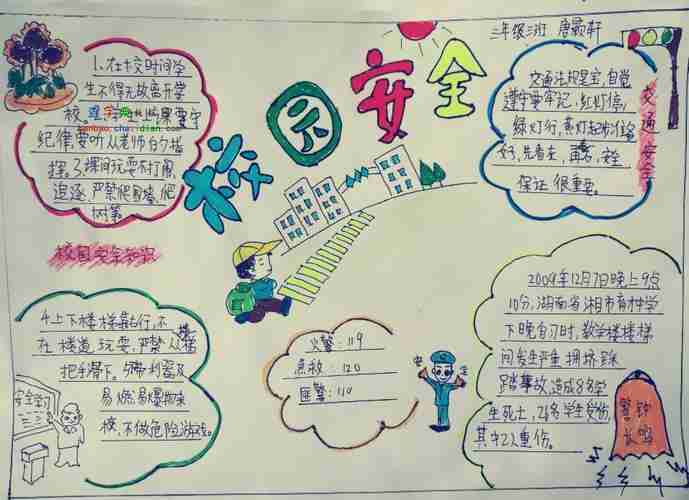 校园安全
三年级三班 唐颢轩
1、在校时间学
生不得无故离开学
纪律,要听从老师的指
挥。3课间玩耍不打闹、
追逐,严禁爬围墙、爬
树等。
校园安全知识
交通法规是宝,自觉
遵守要牢记,红灯停,
绿灯行,黄灯
好,先看左,再右,
保证很重要。
交通安全
4上下楼梯靠右行,不
在楼道玩耍,严禁从楼
把手滑下。5带利器及
易燃易爆物来
校,不做危险游戏。
火警:119
急救:120
匪警:110
2009年12月7日晚上9点
10分,湖南省湘市育才中学
下晚自习时,教学楼楼梯
间发生严重拥挤踩
踏事故,造成8名学
生死士,26名学生受伤
其中2人重伤。
警钟
长鸣